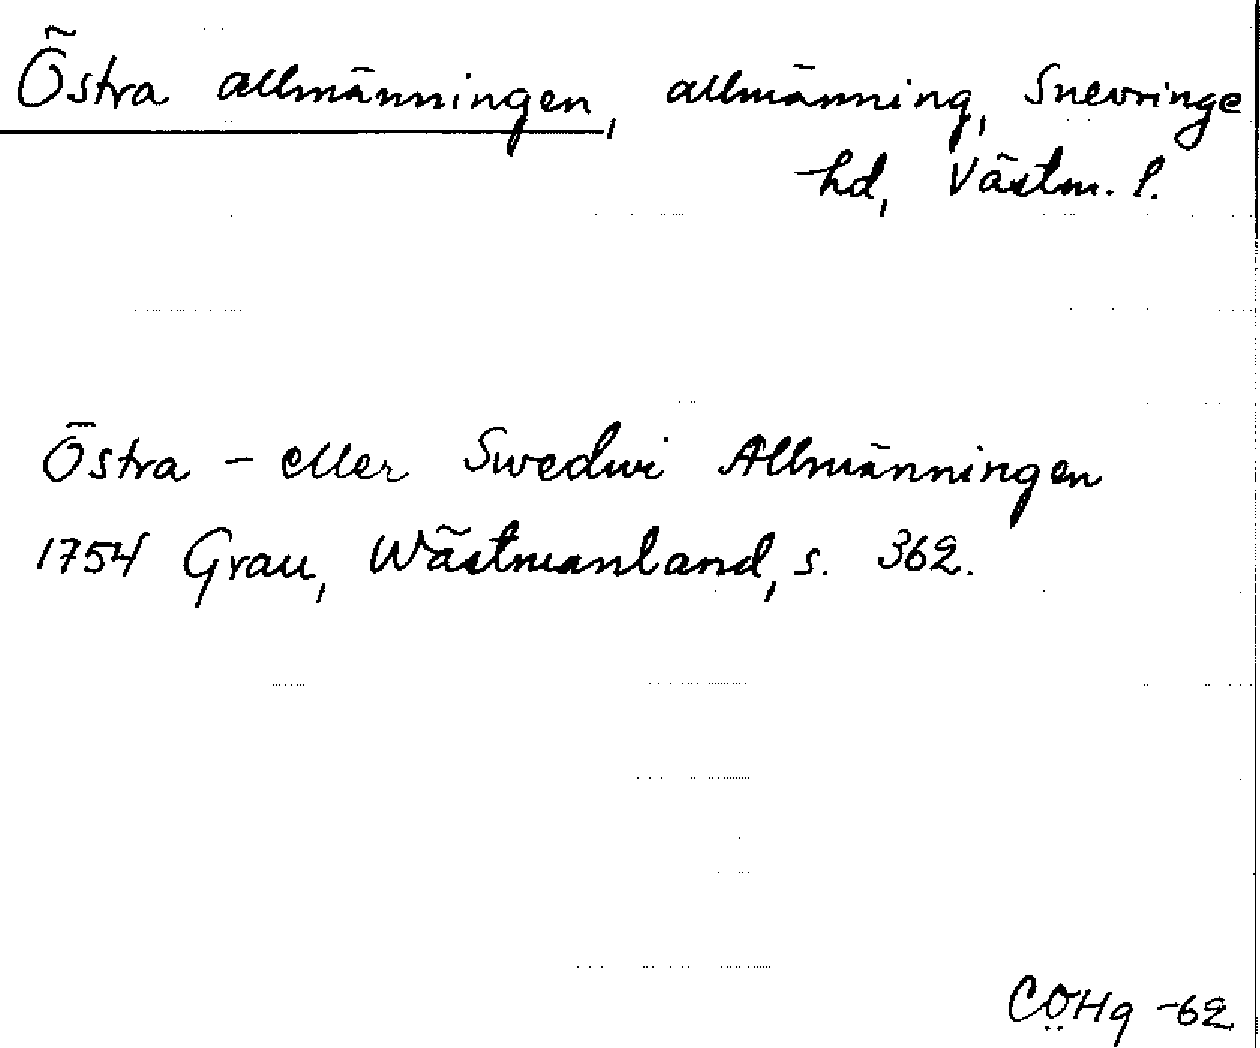 Östra allmänningen, allmänning, Snevringe
hd, Västm. l.
Östra - eller Swedwi Allmänningen
1754 Grau, Wästmanland, s. 362.
CÖHg -62